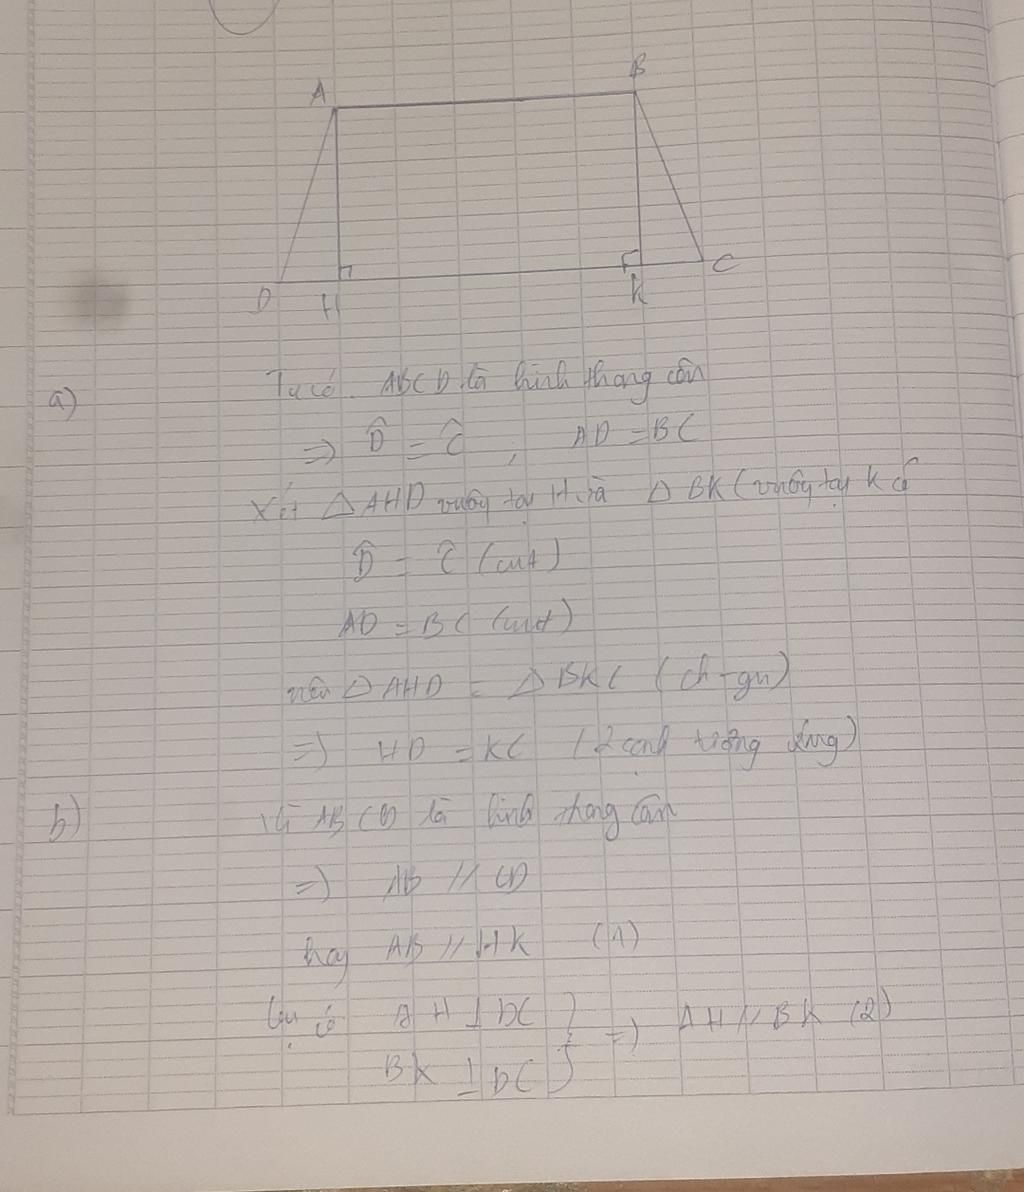 A B
D H K C
a) Ta có. ABCD là hình thang cân
=> D̂ = Ĉ , AD = BC
Xét △AHD vuông tại H và △BKC vuông tại K có
D̂ = Ĉ (cmt)
AD = BC (cmt)
nên △AHD = △BKC (ch-gn)
=> HD = KC (2 cạnh tương ứng)
b) Vì ABCD là hình thang cân
=> AB // CD
hay AB // HK (1)
có AH ⊥ DC } => AH // BK (2)
BK ⊥ DC